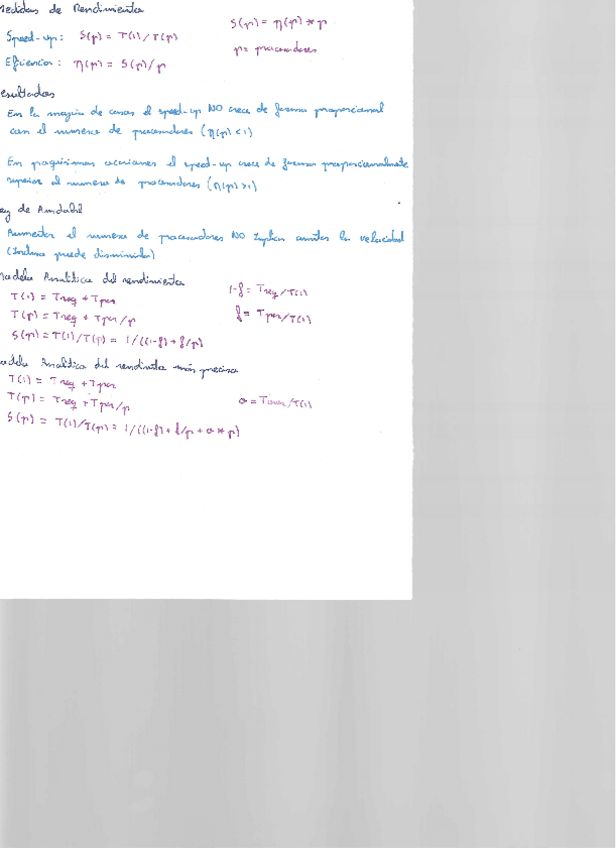 Medidas de Rendimiento
S(p) = η(p) * p
Speed-up: S(p) = T(1)/T(p)
p = procesadores
Eficiencia: η(p) = S(p)/p
esultados
En la mayoría de casos el speed-up NO crece de forma proporcional
con el numero de procesadores (η(p) < 1)
En poquísimas ocasiones el speed-up crece de forma proporcionalmente
superior al numero de procesadores (η(p) > 1)
ey de Amdahl
Aumentar el numero de procesadores NO implica la velocidad
(Incluso puede disminuirla)
odelo Analítico del rendimiento
1-f = Tseq/T(1)
T(1) = Tseq + Tpar
T(p) = Tseq + Tpar/p
f = Tpar/T(1)
S(p) = T(1)/T(p) = 1/((1-f) + f/p)
odelo Analítico del rendimiento más preciso
T(1) = Tseq + Tpar
T(p) = Tseq + Tpar/p
o = Tover/T(1)
S(p) = T(1)/T(p) = 1/((1-f) + f/p + o * p)